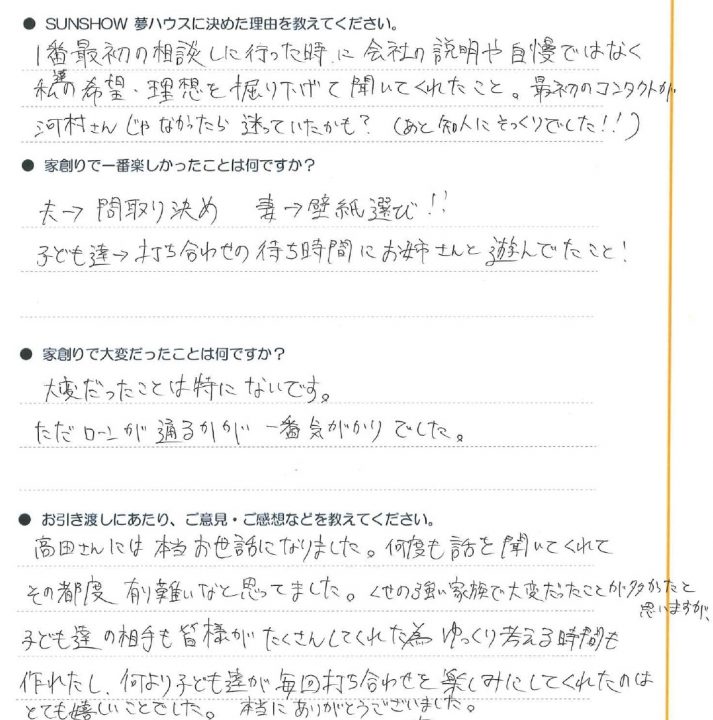 ● SUNSHOW 夢ハウスに決めた理由を教えてください。
1番最初の相談しに行った時に会社の説明や自慢ではなく
私達の希望・理想を掘り下げて聞いてくれたこと。最初のコンタクトが
河村さんじゃなかったら迷っていたかも？（あと知人にそっくりでした!!）
● 家創りで一番楽しかったことは何ですか？
夫→間取り決め 妻→壁紙選び!!
子ども達→打ち合わせの待ち時間にお姉さんと遊んでたこと!
● 家創りで大変だったことは何ですか？
大変だったことは特にないです。
ただローンが通るかが一番気がかりでした。
● お引き渡しにあたり、ご意見・ご感想などを教えてください。
高田さんには本当お世話になりました。何度も話を聞いてくれて
その都度有り難いなと思ってました。くせの強い家族で大変だったことが多かったと
思いますが、
子ども達の相手も皆様がたくさんしてくれた為ゆっくり考える時間も
作れたし、何より子ども達が毎回打ち合わせを楽しみにしてくれたのは
とても嬉しいことでした。本当にありがとうございました。